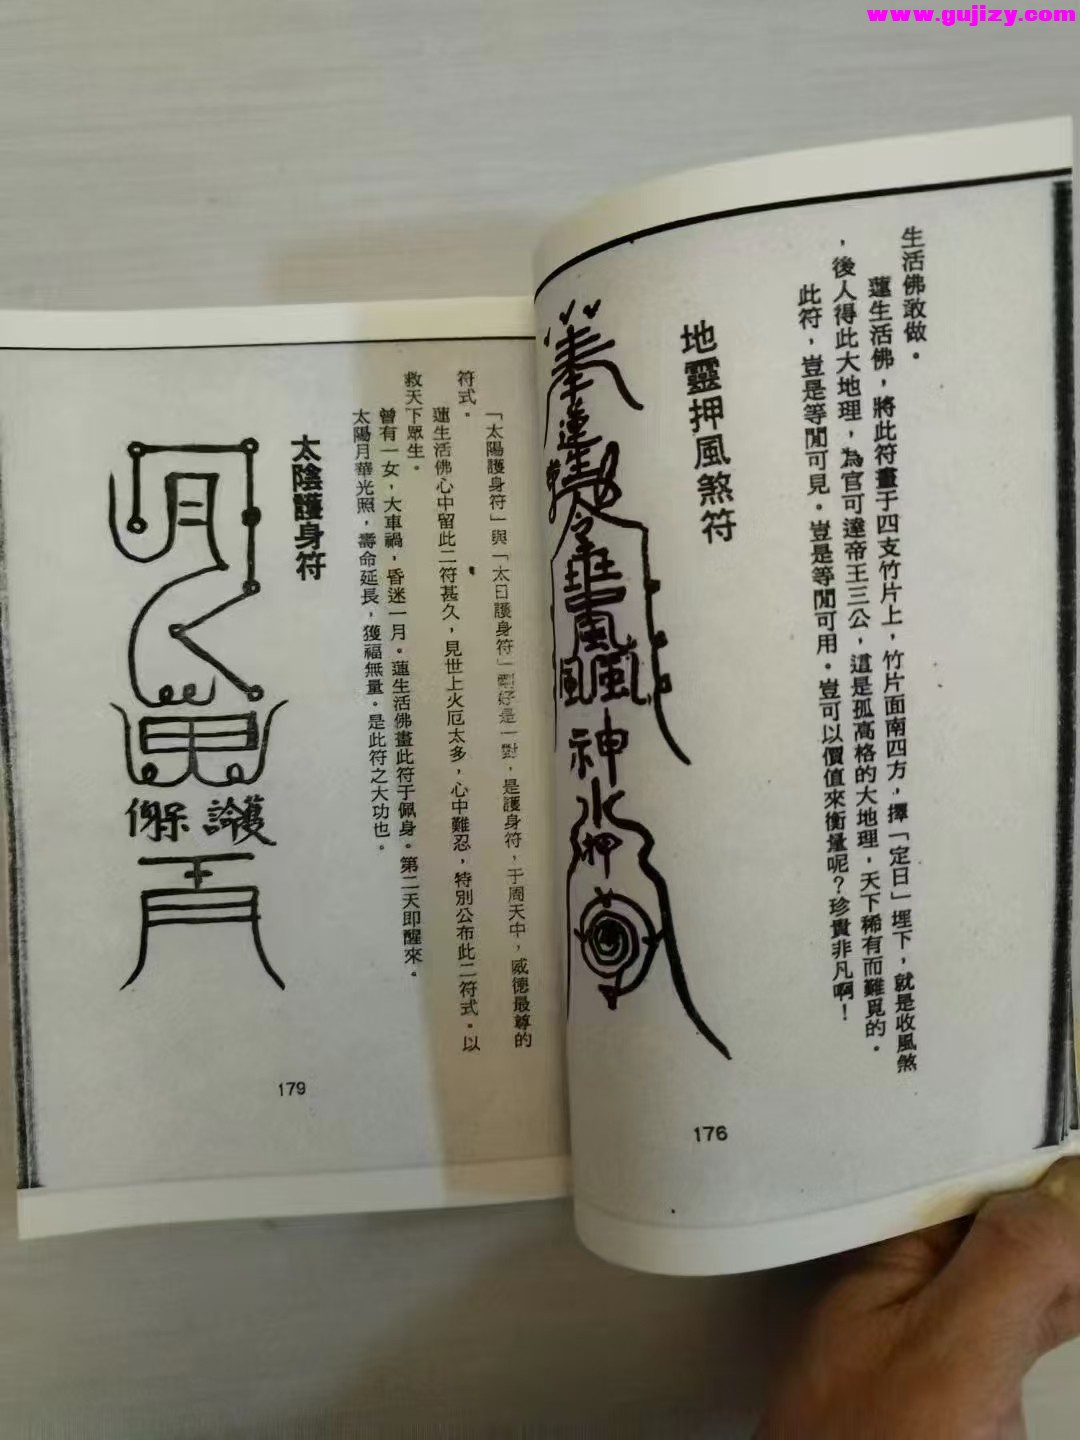 www.gujizy.com
生活佛敢做。
蓮生活佛，將此符畫于四支竹片上，竹片面南四方，擇「定日」埋下，就是收風煞
，後人得此大地理，為官可達帝王三公，這是孤高格的大地理，天下稀有而難覓的。
此符，豈是等閒可見。豈是等閒可用。豈可以價值來衡量呢？珍貴非凡啊！
地靈押風煞符
奉蓮生
令
風
風風
神水
押
176
「太陽護身符」與「太日護身符」剛好是一對，是護身符，于周天中，威德最尊的
符式。
蓮生活佛心中留此二符甚久，見世上火厄太多，心中難忍，特別公布此二符式。以
救天下眾生。
曾有一女，大車禍，昏迷一月。蓮生活佛畫此符于佩身。第二天即醒來。
太陽月華光照，壽命延長，獲福無量。是此符之大功也。
太陰護身符
179